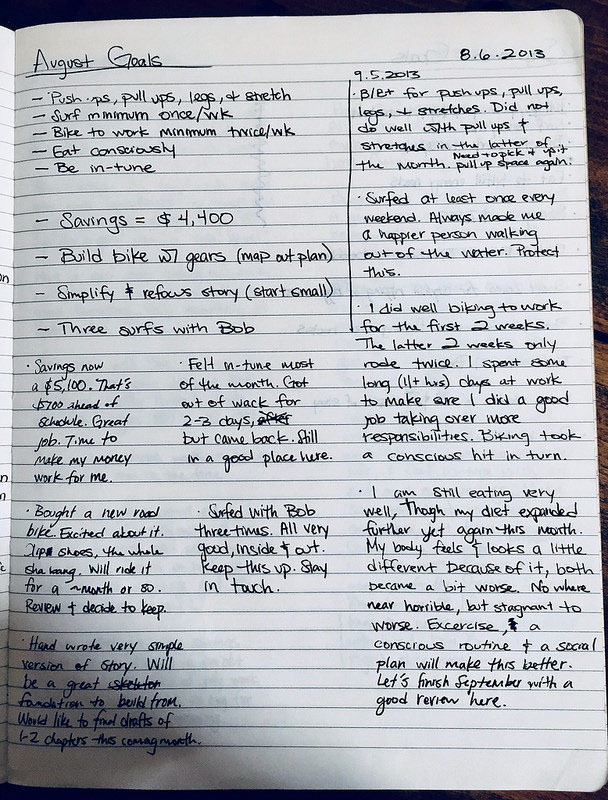 August Goals
8.6.2013
- Push-ups, pull ups, legs, & stretch
- Surf minimum once/wk
- Bike to work minimum twice/wk
- Eat consciously
- Be in-tune
- Savings = $4,400
- Build bike w/ gears (map out plan)
- Simplify & refocus story (start small)
- Three surfs with Bob
· Savings now
a $5,100. That's
$700 ahead of
schedule. Great
job. Time to
make my money
work for me.
· Bought a new road
bike. Excited about it.
shoes, the whole
sha bang. Will ride it
for a ~month or so.
Review & decide to keep.
· Hand wrote very simple
version of story. Will
be a great skeleton
foundation to build from.
Would like to final drafts of
1-2 chapters this coming month.
· Felt in-tune most
of the month. Got
out of wack for
2-3 days, after
but came back. Still
in a good place here.
· Surfed with Bob
three times. All very
good, inside & out.
Keep this up. Stay
in touch.
9.5.2013
· B/B+ for push ups, pull ups,
legs, & stretches. Did not
do well with pull ups &
stretches in the latter of
the month. Need to pick up
pull up space again.
· Surfed at least once every
weekend. Always made me
a happier person walking
out of the water. Protect
this.
· I did well biking to work
for the first 2 weeks.
The latter 2 weeks only
rode twice. I spent some
long (11+ hrs) days at work
to make sure I did a good
job taking over more
responsibilities. Biking took
a conscious hit in turn.
· I am still eating very
well, Though my diet expanded
further yet again this month.
My body feels & looks a little
different because of it, both
became a bit worse. No where
near horrible, but stagnant to
worse. Excercise, & a
conscious routine & a social
plan will make this better.
Let's finish September with a
good review here.